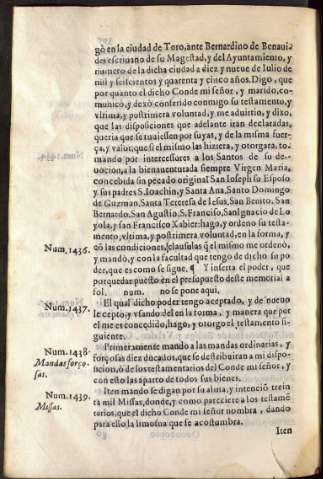 gò en la ciudad de Toro, ante Bernardino de Benaui
des escriuano de su Magestad, y del Ayuntamiento, y
numero de la dicha ciudad a diez y nueue de Iulio de
mil y seiscientos y quarenta y cinco años. Digo, que
por quanto el dicho Conde mi señor, y marido, co-
municó, y dexò conferido conmigo su testamento, y
vltima, y postrimera voluntad, y me aduirtio, y dixo,
que las disposiciones que adelante iran declaradas,
queria que se tuuiessen por suyas, y de la misma fuer-
ça, y valor, que si el mismo las hiziera, y otorgara, to-
mando por intercessores a los Santos de su de-
uocion, a la bienauenturada siempre Virgen Maria,
concebida sin pecado original San Ioseph su Esposo
y sus padres S. Ioachin, y Santa Ana, Santo Domingo
de Guzman, Santa Teresa de Iesus, San Benito, San
Bernardo, San Agustin, S. Francisco, San Ignacio de Lo
yola, y san Francisco Xabier: hago, y ordeno su testa-
mento, vltima, y postrimera voluntad, en la forma, y
Num. 1436. cō las condiciones, y clausulas q̃ el mismo me ordenò,
y mandò, y con la facultad que tengo de dicho su po
der, que es como se sigue. ¶ Y inserta el poder, que
por quedar puesto en el presupuesto deste memorial a
fol. num. no se pone aqui.
Num. 1437. El qual dicho poder tengo aceptado, y de nueuo
le cepto y vsando del en la forma, y manera que por
el me es concedido, hago, y otorgo el testamento si-
guiente.
Num. 1438. Primeramente mando a las mandas ordinarias, y
Mandas forço- forçosas diez ducados, que se destribuiran a mi dispo-
sas. sicion, ò de sos testamentarios del Conde mi señor, y
con esto las aparto de todos sus bienes.
Num. 1439. Iten mando se digan por su alma, y intenciō trein
Missas. ta mil Missas, donde, y como pareciere a los testamē
tarios, que el dicho Conde mi señor nombra, dando
para ello la limosna que se acostumbra.
Iten